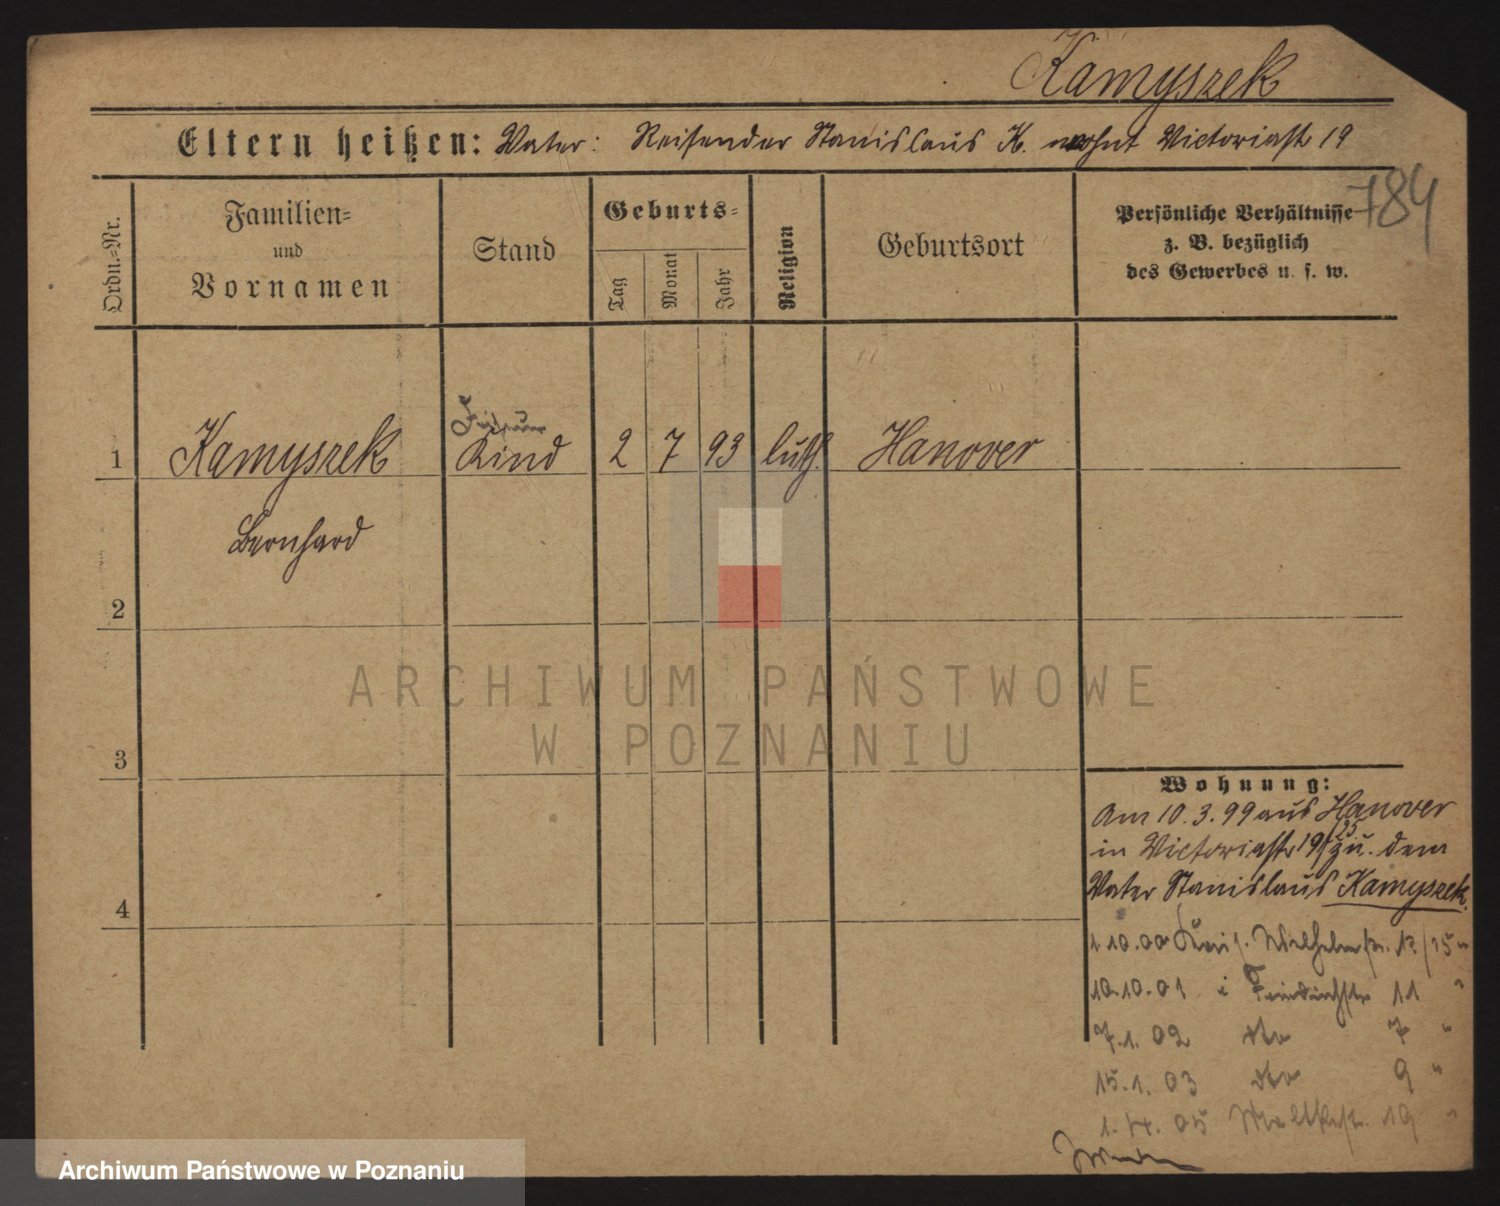 Kamyszek
Eltern heißen: Vater: Reisender Stanislaus K. wohnt Victoriastr 19
784
Ordn.-Nr.
Familien-
und
Vornamen
Stand
Geburts-
Tag
Monat
Jahr
Religion
Geburtsort
Persönliche Verhältnisse
z. B. bezüglich
des Gewerbes u. s. w.
1 Kamyszek Kind 2 7 93 luth. Hanover
Bernhard
2
3
4
Wohnung:
Am 10.3.99 aus Hanover
in Victoriastr 19/25 zu. dem
Vater Stanislaus Kamyszek.
1.10.00 Wilhelmstr.
10.10.01 i Friedrichstr 11 "
7.1.02 dto 7 "
15.1.03 dto 9 "
1.4.05 Moltkestr. 19 "
ARCHIWUM PAŃSTWOWE
W POZNANIU
Archiwum Państwowe w Poznaniu